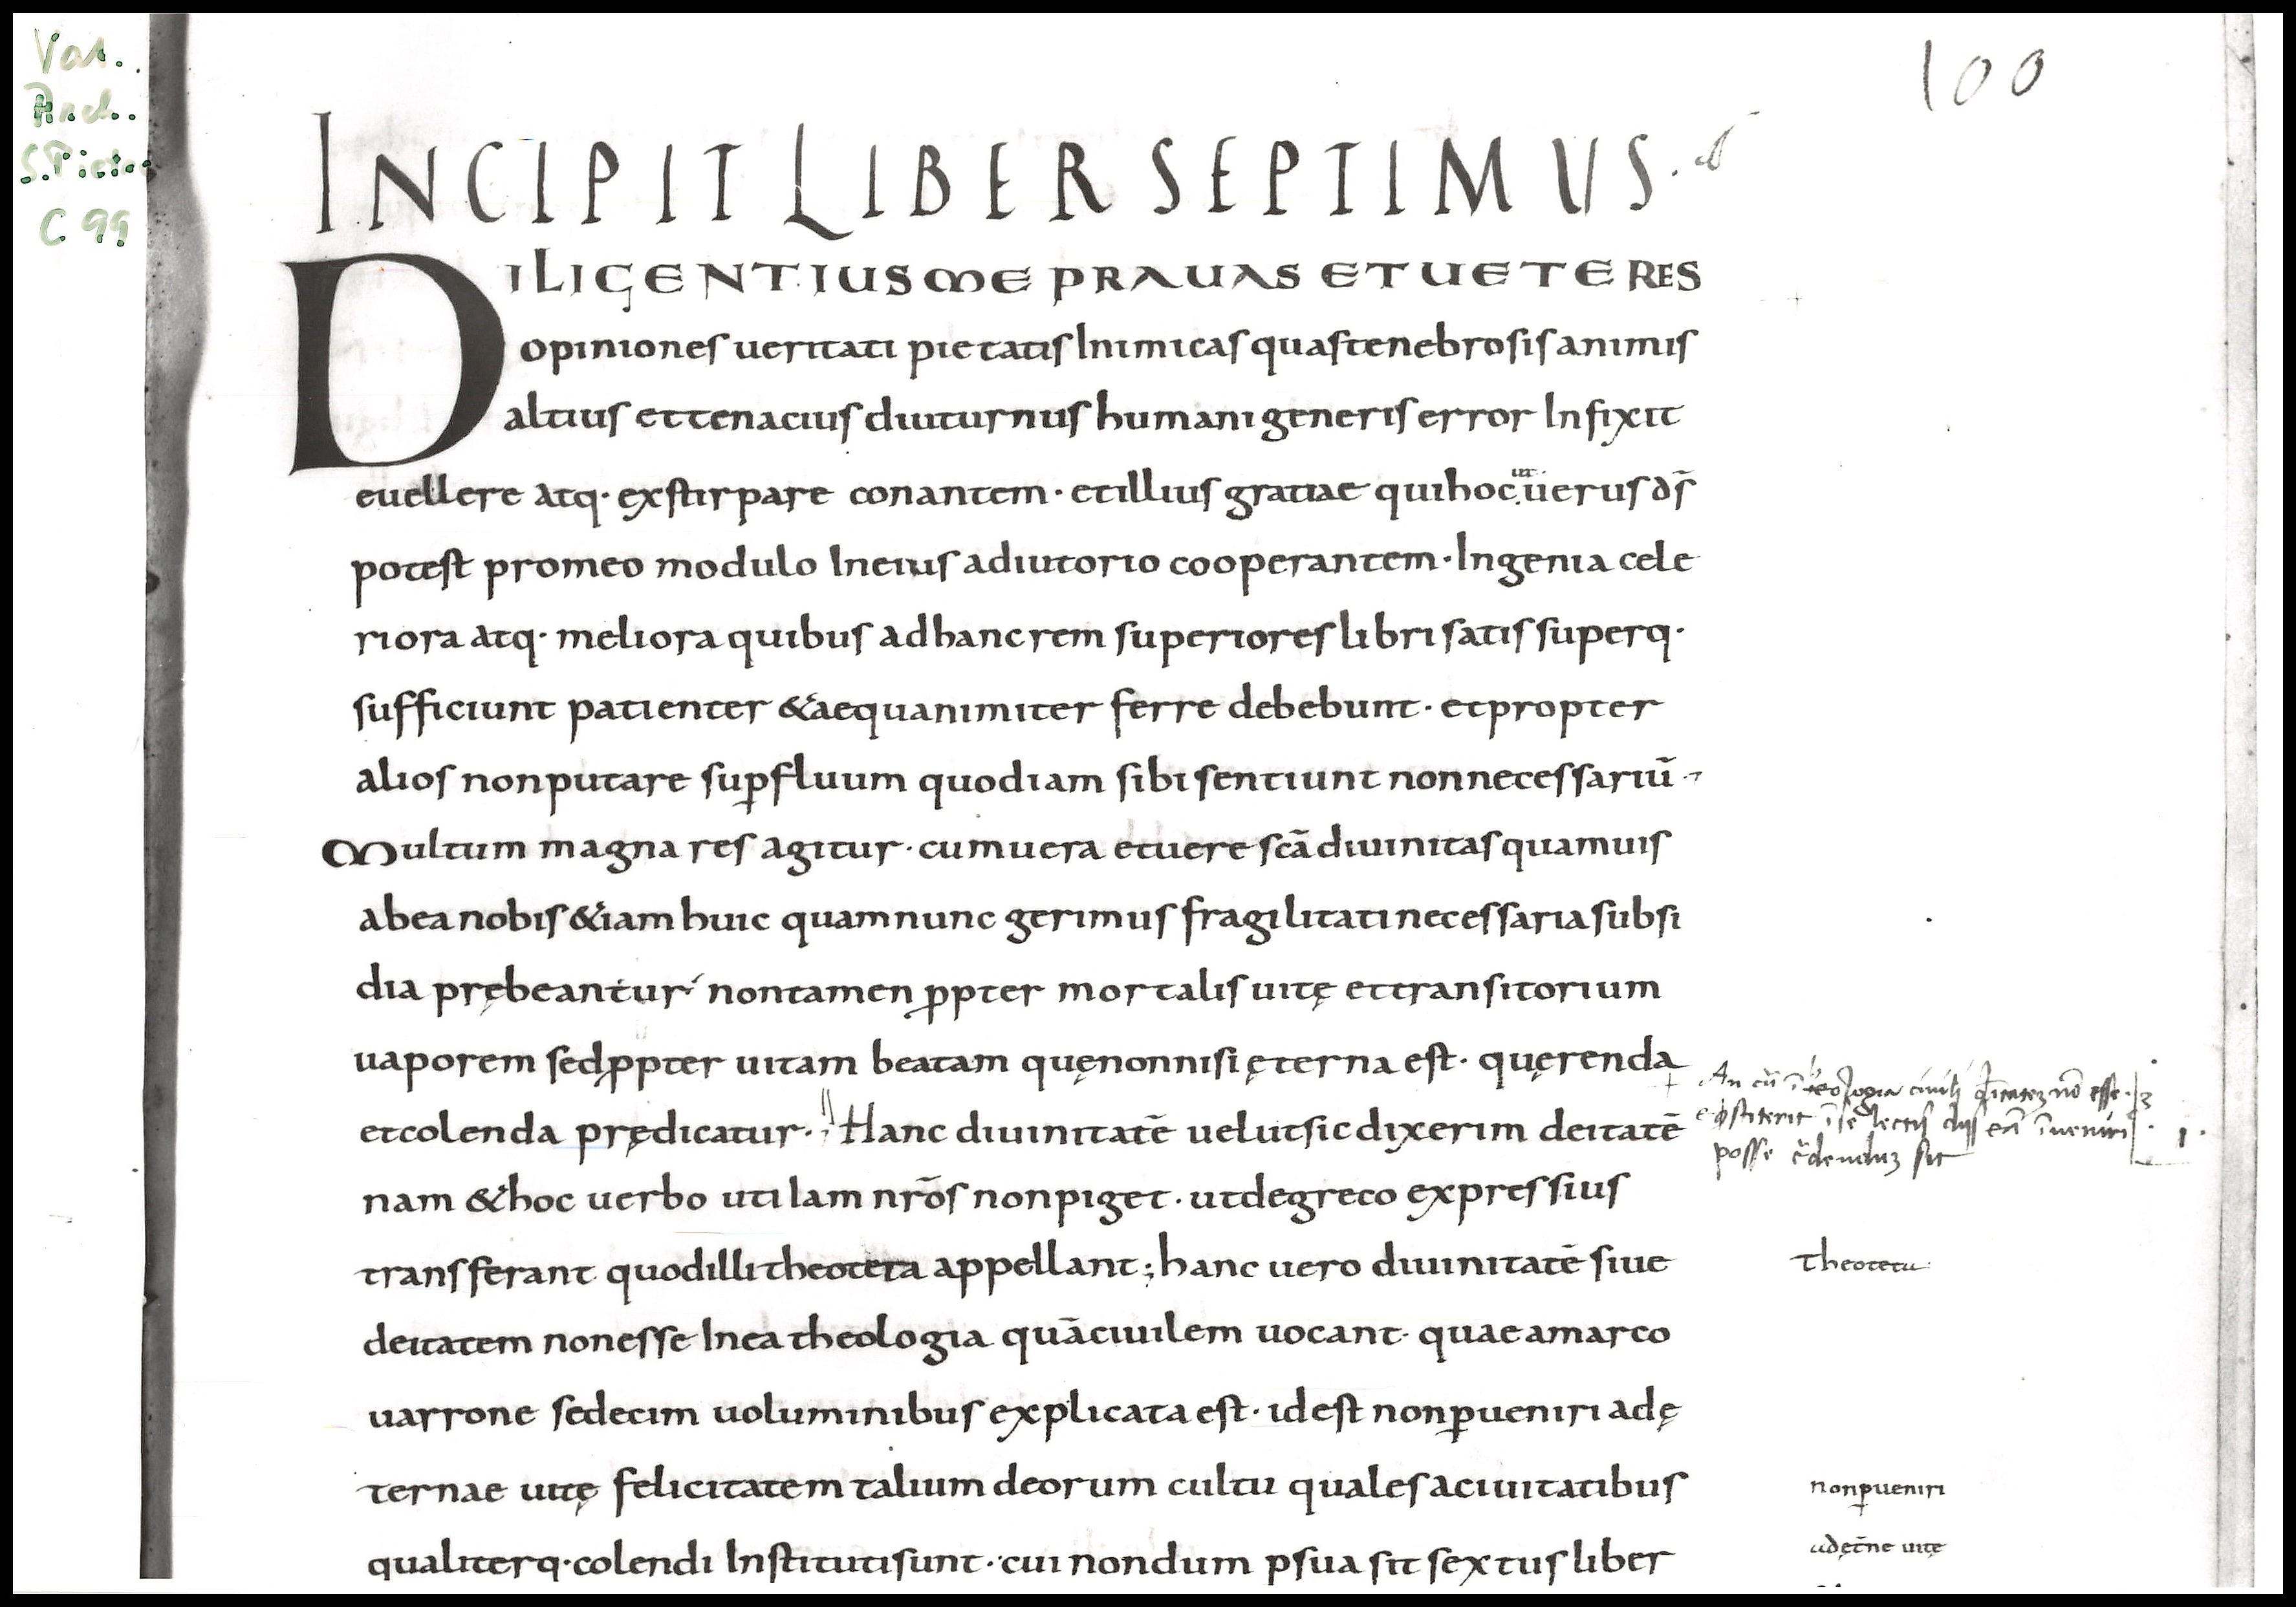 Vat.
Arch.
S. Pietro
C 99
100
INCIPIT LIBER SEPTIMUS.
DILIGENTIUS ME PRAUAS ET UETERES
opiniones ueritati pietatis Inimicas quas tenebrosis animis
altius et tenacius diuturnus humani generis error Infixit
euellere atq· exstirpare conantem· et illius gratiae qui hoc ut uerus d̄s
potest pro meo modulo In eius adiutorio cooperantem· Ingenia cele
riora atq· meliora quibus ad hanc rem superiores libri satis superq·
sufficiunt patienter & aequanimiter ferre debebunt· et propter
alios non putare suꝑfluum quod iam sibi sentiunt non necessariū
Multum magna res agitur· cum uera et uere sc̄a diuinitas quamuis
ab ea nobis &iam huic quam nunc gerimus fragilitati necessaria subsi
dia prębeantur non tamen ꝓpter mortalis uitę et transitorium
uaporem sed ꝓpter uitam beatam quę non nisi ęterna est· quęrenda
et colenda prędicatur· Hanc diuinitatē uel ut sic dixerim deitatē
nam & hoc uerbo uti Iam nr̄os non piget· ut de greco expressius
transferant quod illi theoteta appellant; hanc uero diuinitatē siue
deitatem non esse In ea theologia quā ciuilem uocant· quae a marco
uarrone sedecim uoluminibus explicata est· id est non ꝑueniri ad ę
ternae uitę felicitatem talium deorum cultu quales a ciuitatibus
qualiterq· colendi Instituti sunt· cui nondum ꝑsuasit sextus liber
An cū ī teologia ciuili
posse
sit
1·
theotetu
non ꝑueniri
ad ęt̄ne uitę